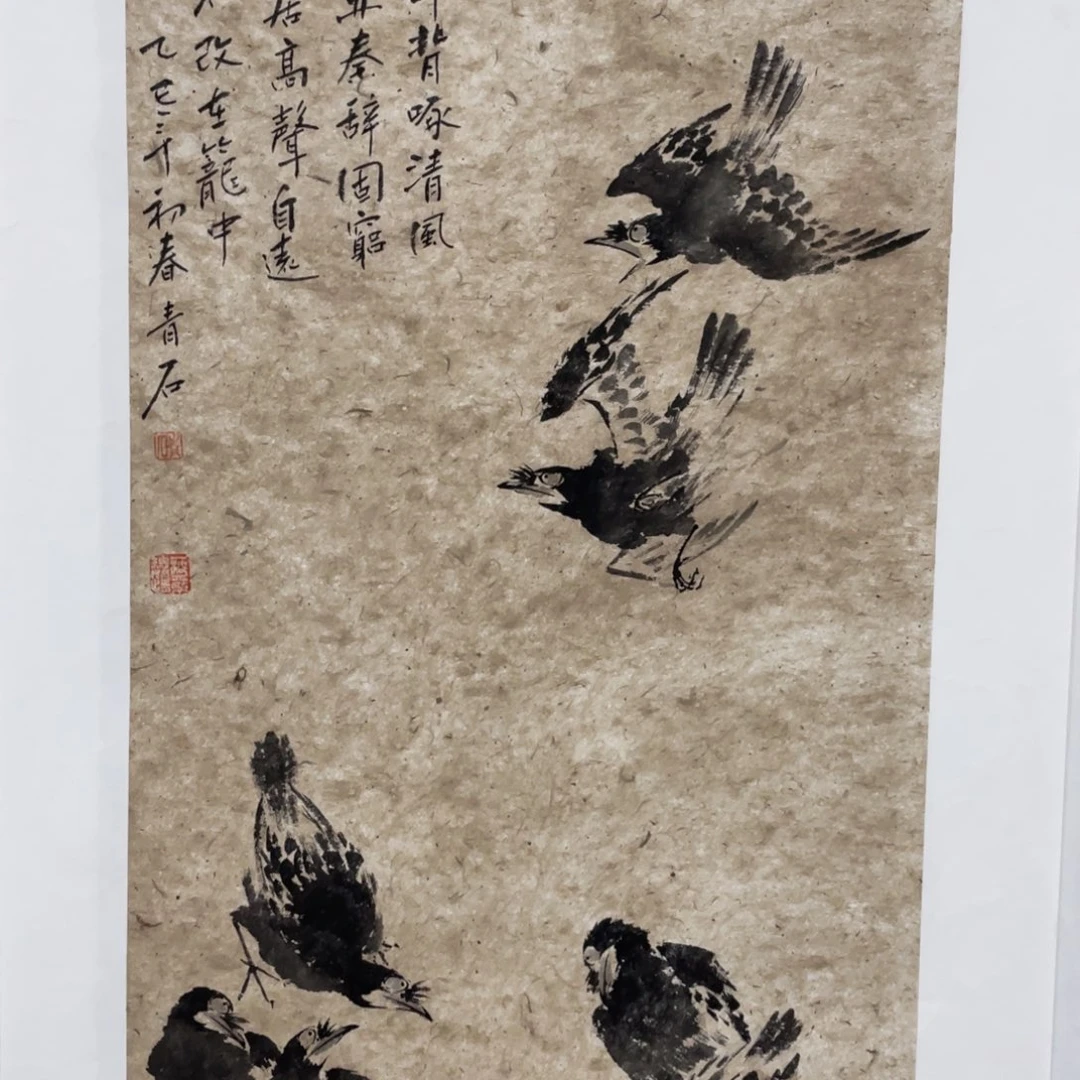 背啄清風
奏辭固窮
居高聲自遠
改在籠中
乙巳年初春青石